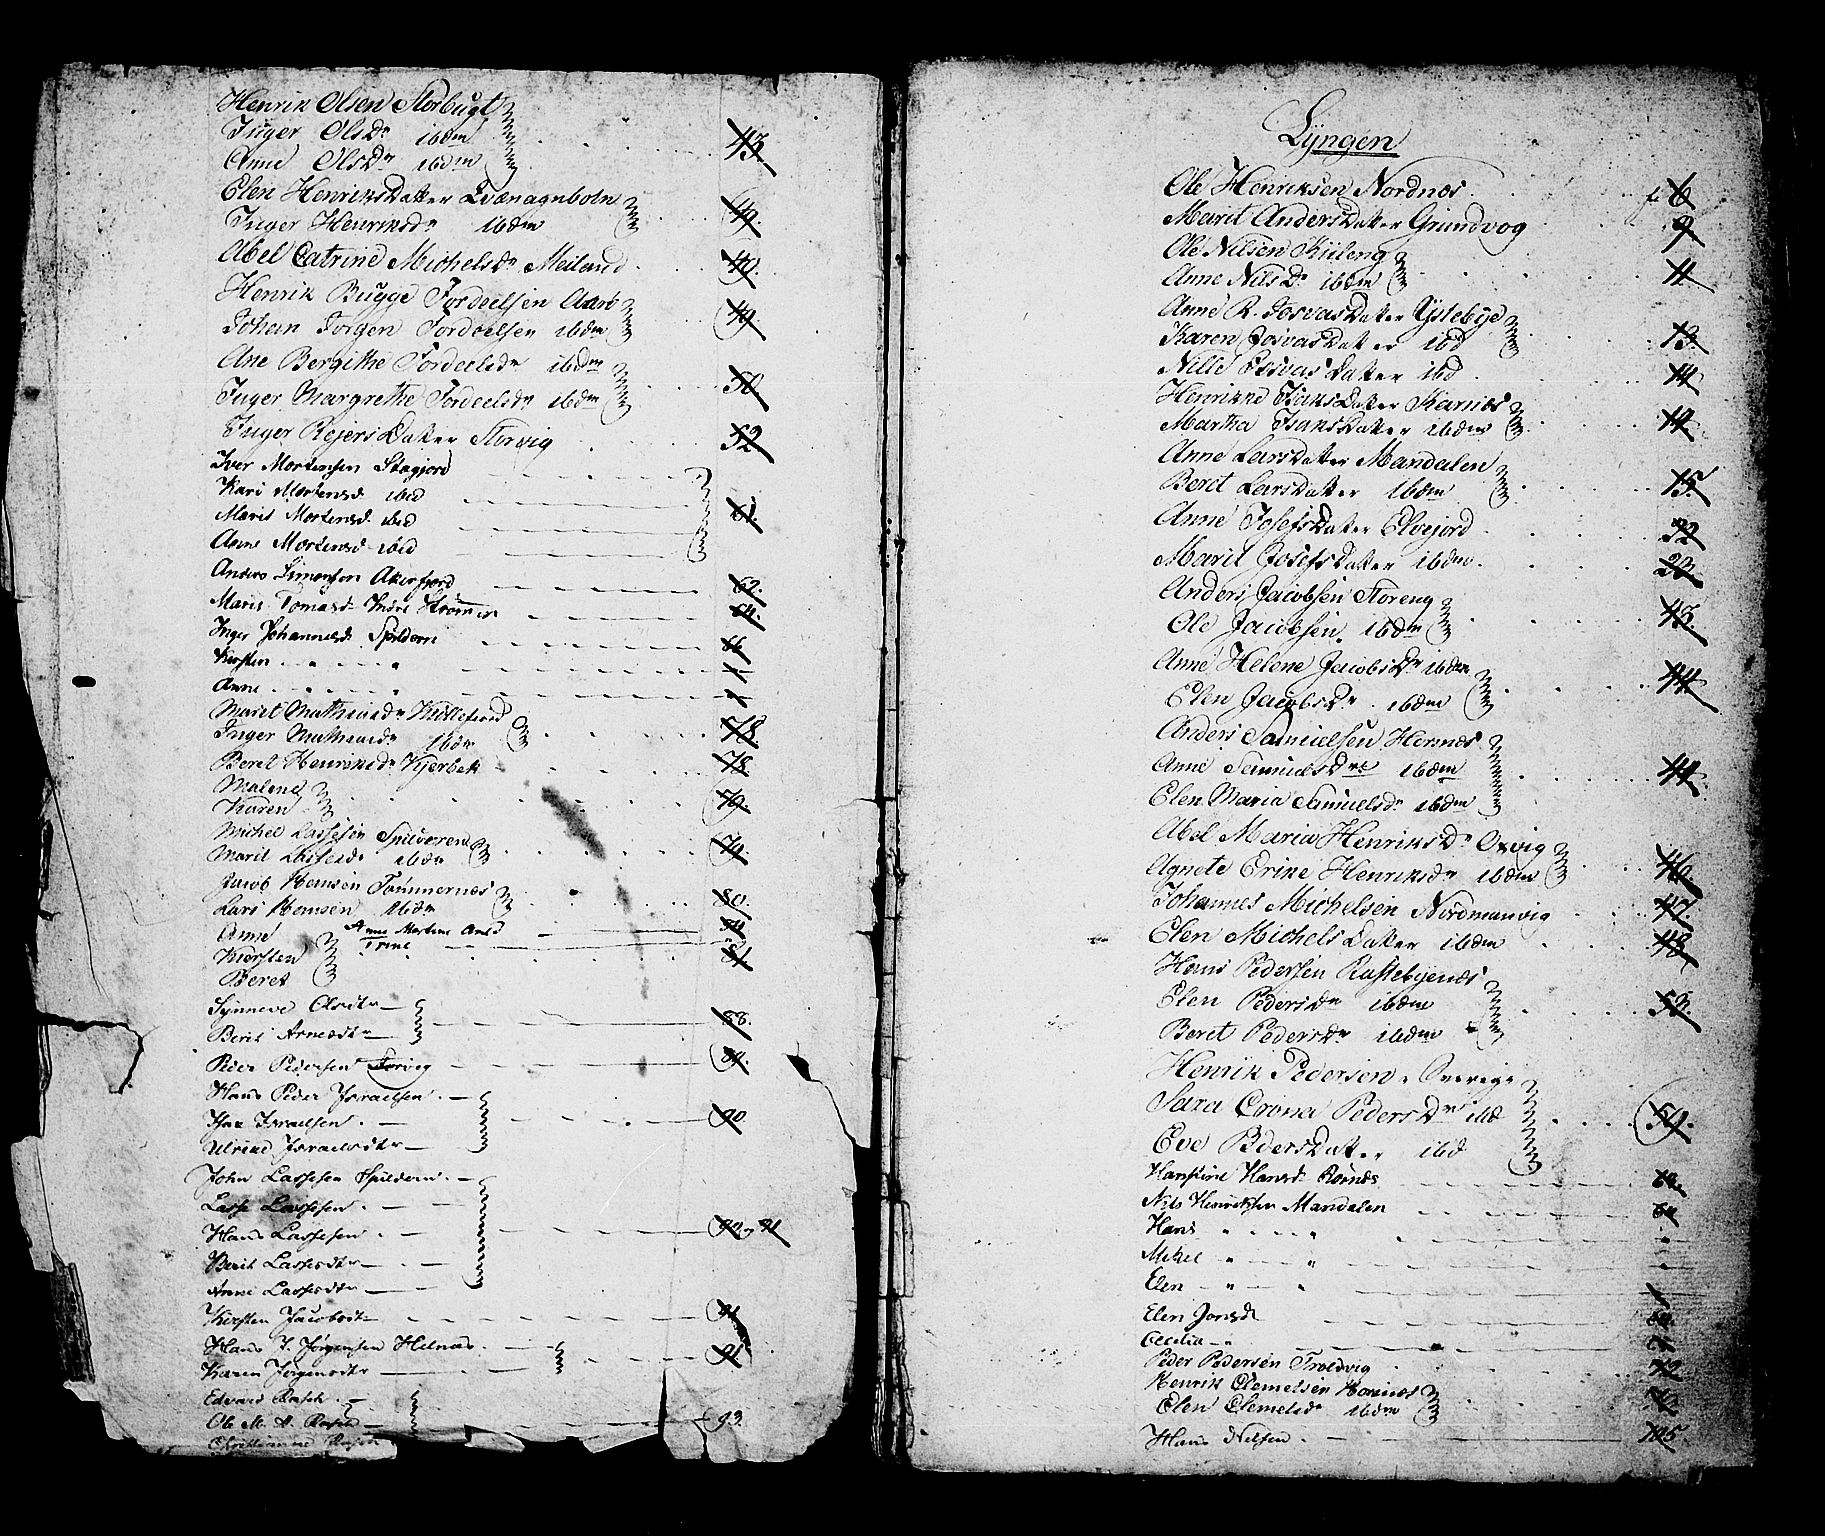 Henrik Olsen Storbugt
Inger Olsdr ibdm 43.
Anne Olsdr ibdm
Elen Henriksdatter Qvænagnbotn
Inger Henriksdr ibdm 49.
Abel Catrine Michelsdr Meiland 49.
Henrik Bugge Fordeelsen
Johan Jørgen Fordeelsen ibdm 49.
Ane Bergithe Fordeelsdr ibdm
Inger Margrethe Fordeelsdr ibdm 50.
Inger Rejersdatter Storvig 52
Iver Mortensen
Kari Mortensd ibid
Marit Mortensd. ibid 61.
Anne Mortensd ibid
Anders Simonsen 62.
Marit Tomasd. Indre 64.
Inger Johannesd. Spildern 66
Kirsten " "
Anne " "
Maret Mathiasdr
Inger Mathiasdr ibdm 78.
Beret Henriksdr Kjerbek 78.
Malene
Karen 79.
Michel Lassesen
Marit Lassesdr ibdm 79.
Jacob Hansen Tømmernæs
Lars Hansen ibdm 80.
Anne
Anne Martine
Trine
Kiersten 81.
Beret
Synneve Olsdtr
Berit Arnesdtr 88.
Peder Pedersen Sørvig 89.
Hans Peder Israelsen
Isac Israelsen 90.
Ulrike Israelsdtr
John Lassesen Spildern
Lasse Lassesen
Hans Lassesen 90 og 91
Berit Lassesdtr
Anne Lassesdtr
Kirsten Jacobsdtr 91
Hans J. Jørgensen Helnæs
Karen Jørgensdtr 91
Edvard Rasch
Ole M. A. Rasch 93.
Christianne Rasch
Lyngen
Ole Henriksen Nordnæs 6
Marit Andersdatter Grundvog 9
Ole Nilsen Kiileng
Anne Nilsdr ibdm 11
Anne R. Josvasdatter Ystebye
Karen Josvasdatter ibd 13.
Nille Josvasdatter ibd 14.
Henrikke Isaksdatter Karnæs
Martha Isaksdatter ibdm 14.
Anne Larsdatter Mandalen
Beret Larsdatter ibdm 15.
Anne Josefsdatter Elvejord 32
Marit Josefsdatter ibdm 23.
Anders Jacobsen Storeng
Ole Jacobsen ibdm 43.
Anne Helene Jacobsdr ibdm
Elen Jacobsdr ibdm 44.
Anders Samuelsen Hornæs
Anne Samuelsdr ibdm 44.
Elen Maria Samuelsdr ibdm
Abel Maria Henriksdr Oxvig
Agnete Erike Henriksdr ibdm 46.
Johannes Michelsen Nordmanvig 47.
Elen Michelsdatter ibdm 48.
Hans Pedersen Rastebynæs
Elen Pedersdr ibdm 53.
Beret Pedersdr ibdm
Henrik Pedersen
Sara Crona Pedersdr ibd 59.
Eve Pedersdatter ibd
Hanstine Hansd. Rornæs
Nils Henriksen Mandalen
Hans " "
Mikel " "
Elen " "
Elen Jonsd
Cecilia "
Peder Pedersen Troldvig 72
Henrik Clemetsen Hornnæs
Elen Clemetsdr ibdm
Hans Nilsen 105.